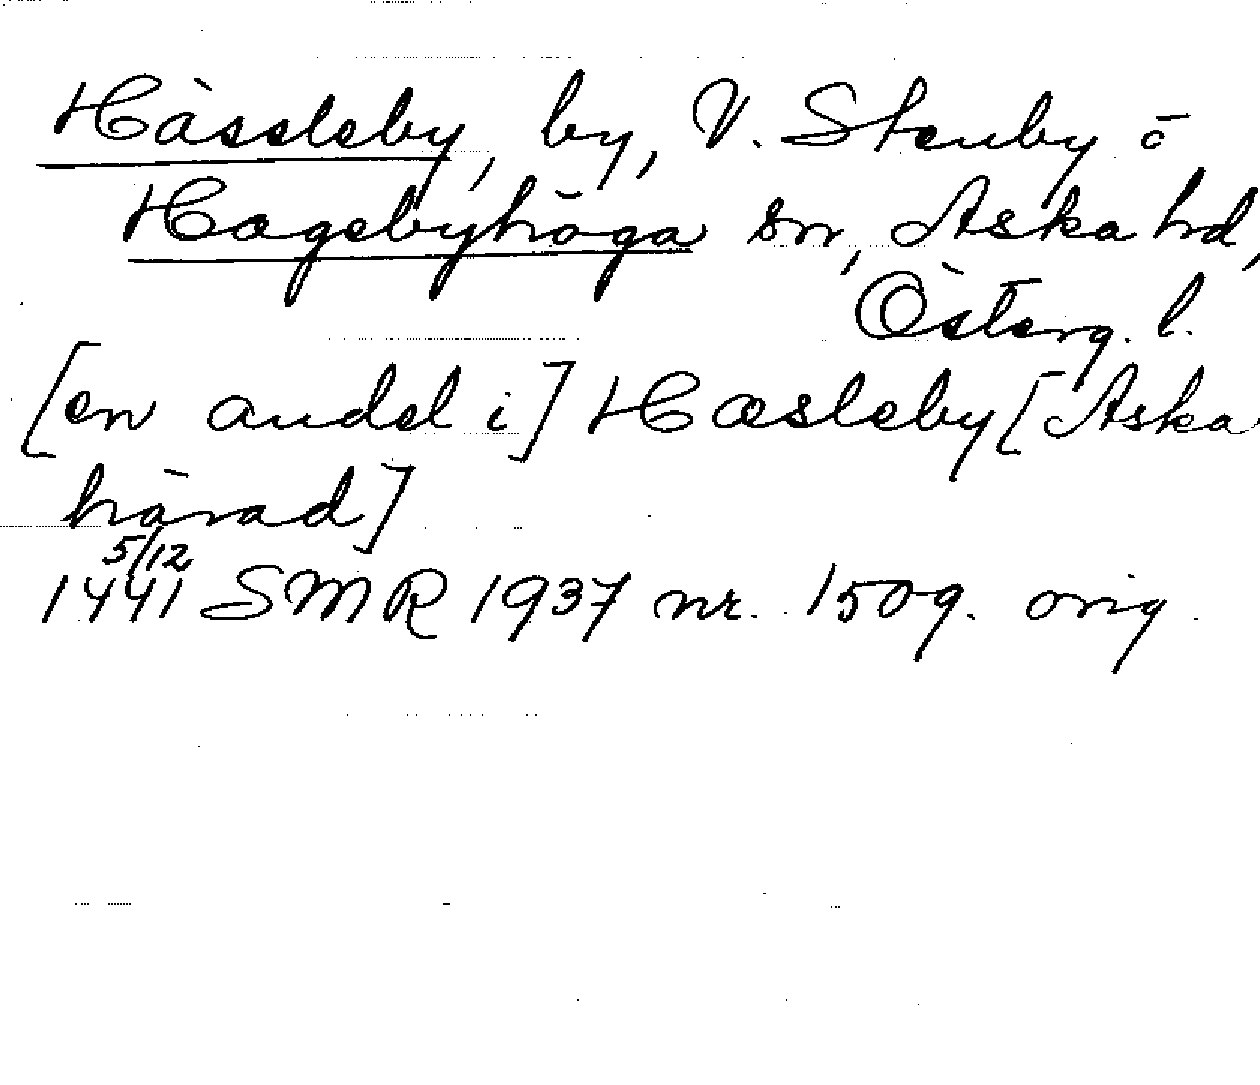 Hässleby, by, V. Stenby ö
Hagebyhöga sn, Aska hd,
Österg. l.
[en andel i] Hæsleby [Aska
härad]
5/12
1441 SMR 1937 nr. 1509. orig.